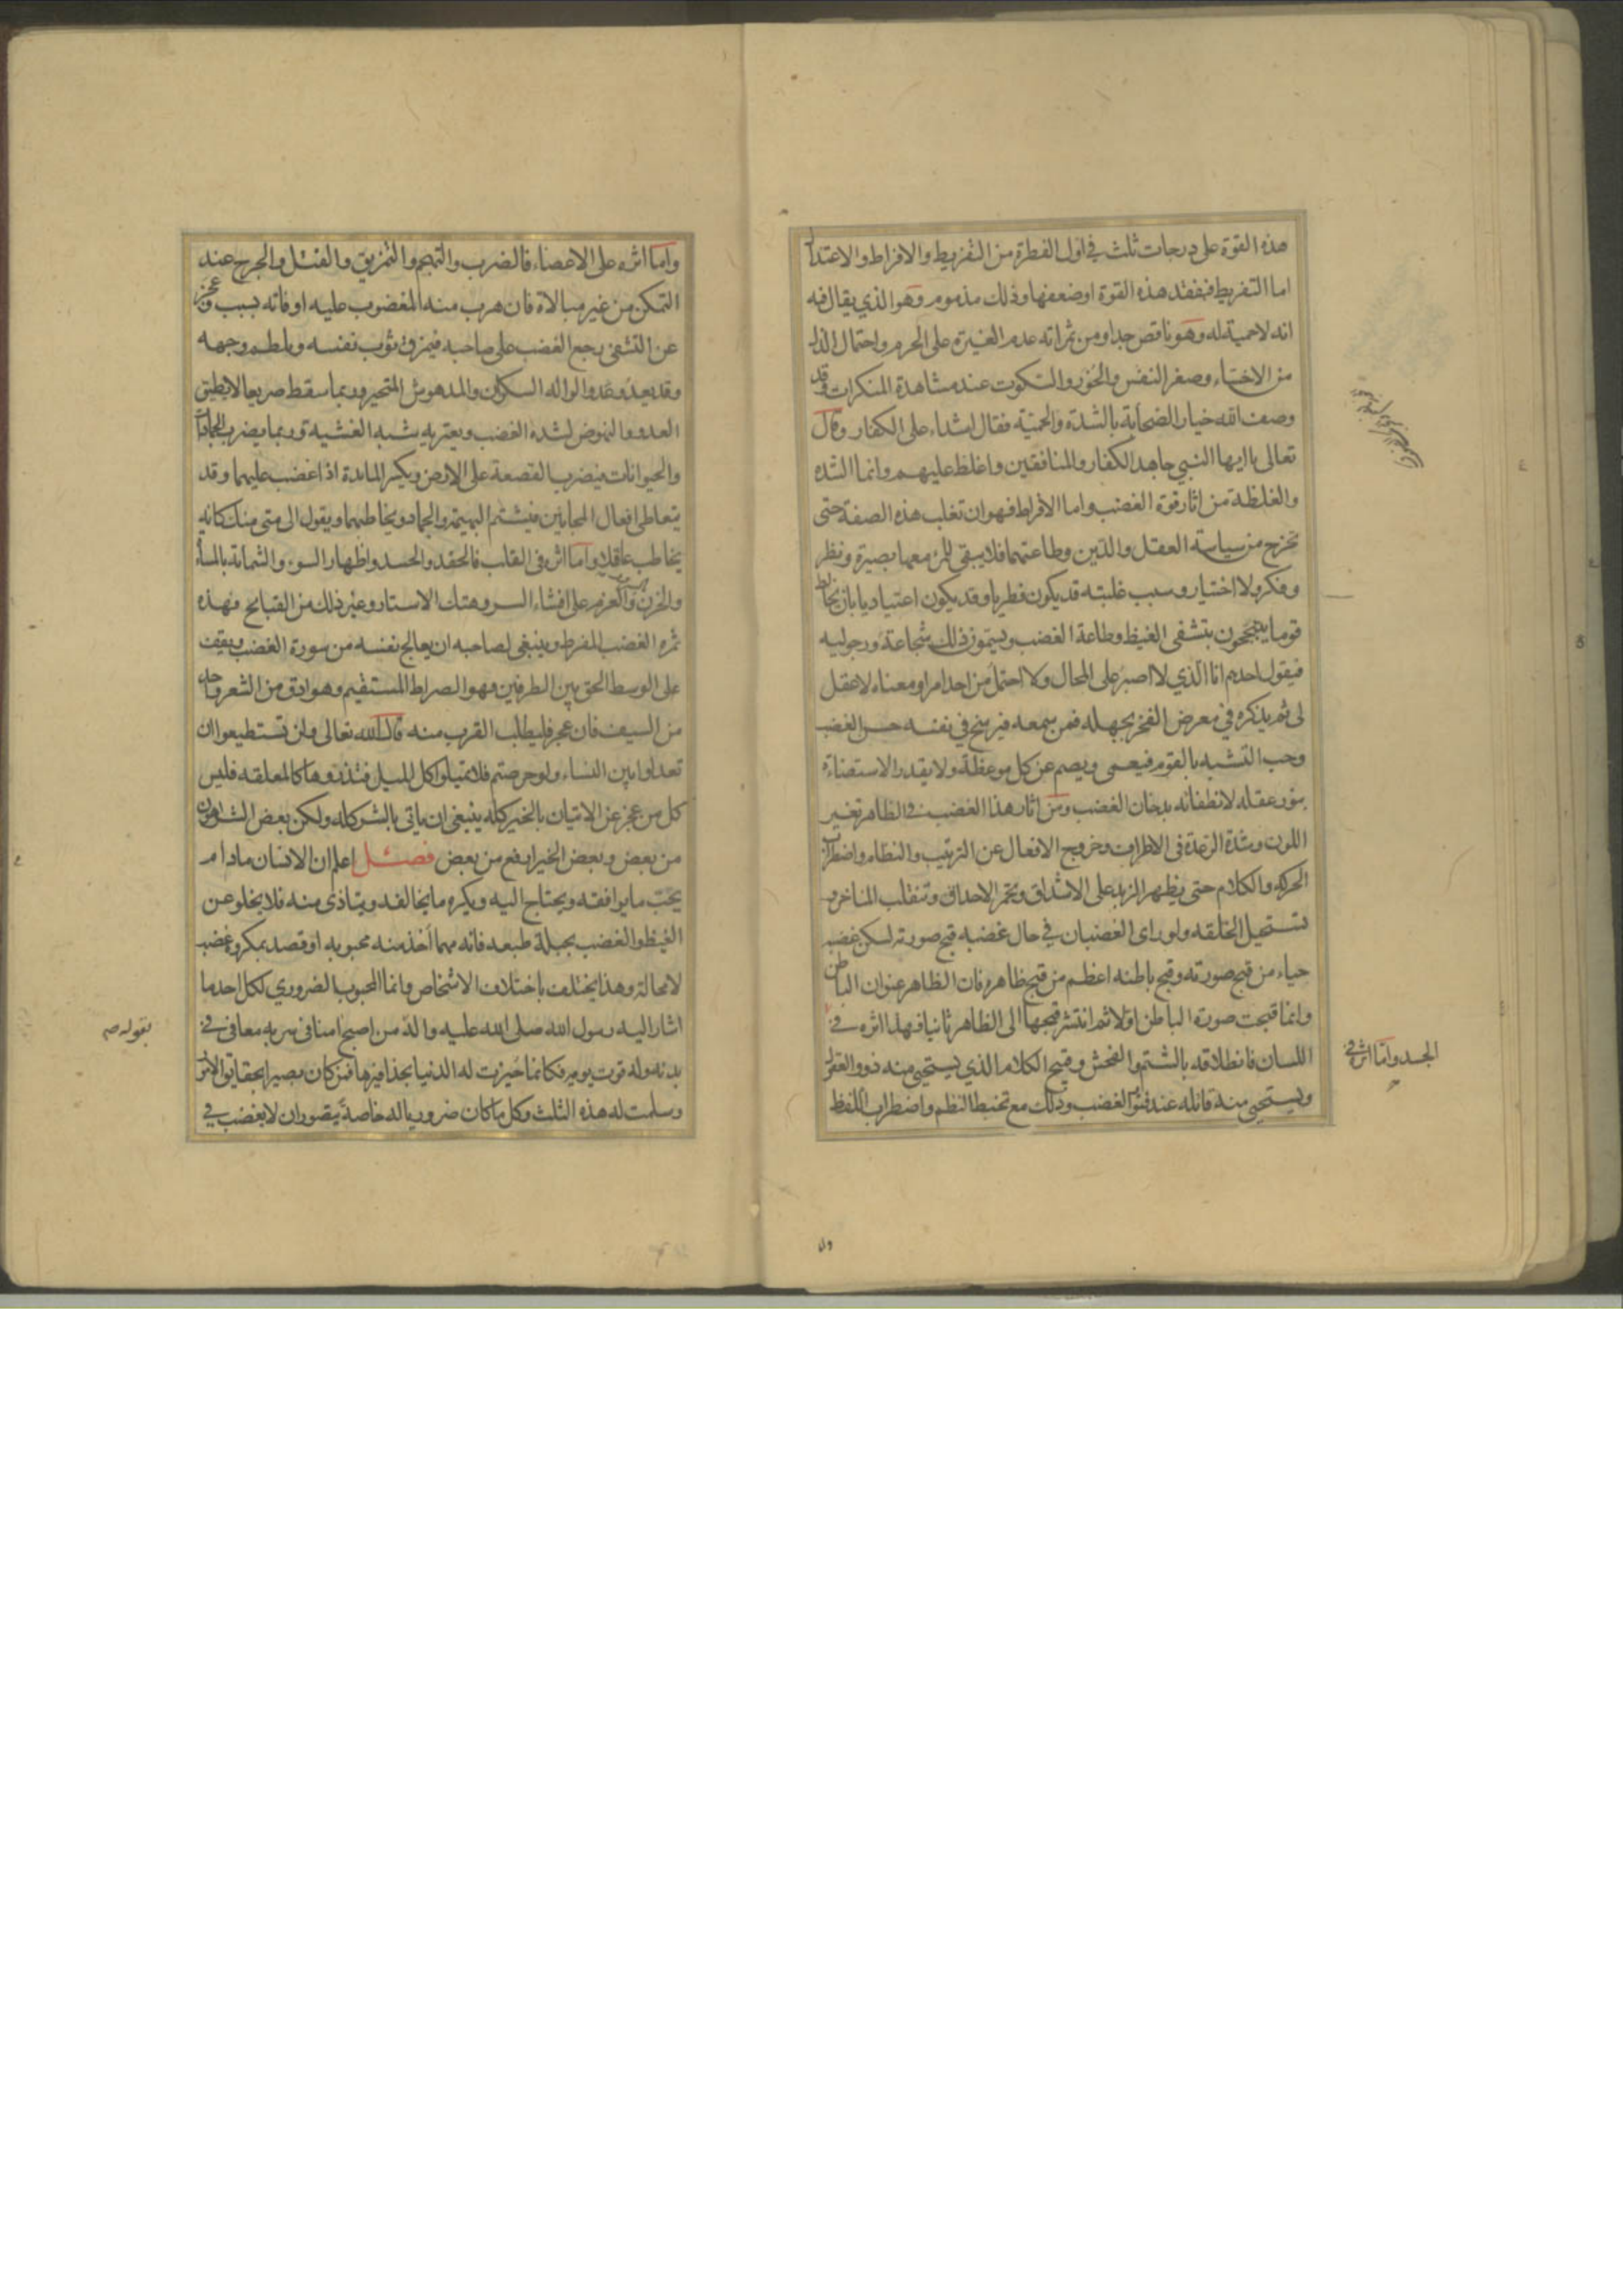 هذه القوة على درجات ثلث في اول الفطرة من التفريط والافراط والاعتدال
اما التفريط فبفقد هذه القوة اوضعفها وذلك مذموم وهو الذي يقال فيه
انه لاحمية له وهو ناقص جدا ومن ثمراته عدم الغيرة على الحرم واحتمال الذل
من الاخساء وصغر النفس والخور والسكوت عند مشاهدة المنكرات وقد
وصف الله خيار الصحابة بالشدة والحمية فقال اشداء على الكفار وقال
تعالى يا ايها النبي جاهد الكفار والمنافقين واغلظ عليهم وانما الشدة
والغلظة من اثار قوة الغضب واما الافراط فهو ان تغلب هذه الصفة حتى
تخرج من سياسة العقل والدين وطاعتهما فلا يبقى للمرء معها بصيرة ونظر
وفكر ولا اختيار وسبب غلبته قد يكون فطريا وقد يكون اعتياديا بان يخالط
قوما يتبجحون بتشفي الغيظ وطاعة الغضب ويسمون ذلك شجاعة ورجولية
فيقول احدهم انا الذي لا اصبر على المحال ولا احتمل من احد امرا ومعناه لا عقل
لى ثم يذكره في معرض الفخر بجهله فمن سمعه فيرسخ في نفسه حسن الغضب
وحب التشبه بالقوم فيعمى ويصم عن كل موعظة ولا يقدر الاستضاءة
بنور عقله لانطفائه بدخان الغضب ومن اثار هذا الغضب في الظاهر تغير
اللون وشدة الرعدة فى الاطراف وخروج الافعال عن الترتيب والنظام واضطراب
الحركة والكلام حتى يظهر الزبد على الاشداق وتحمر الاحداق وتنقلب المناخر و
تستحيل الخلقه ولو راى الغضبان في حال غضبه قبح صورته لسكن غضبه
حياء من قبح صورته وقبح باطنه اعظم من قبح ظاهره فان الظاهر عنوان الباطن
وانما قبحت صورة الباطن اولا ثم انتشر قبحها الى الظاهر ثانيا فهذا اثره في
الجسد واما اثره في
اللسان فانطلاقه بالشتم والفحش وقبيح الكلام الذي يستحيي منه ذوو العقول
ويستحيي منه قائله عند فتور الغضب وذلك مع تخبط النظم واضطراب اللفظ
وان
واما اثره على الاعضاء فالضرب والتهجم والتمزيق والقتل والجرح عند
التمكن من غير مبالاة فان هرب منه المغضوب عليه او فاته بسبب وعجز
عن التشفى رجع الغضب على صاحبه فيمزق ثوب نفسه ويلطم وجهه
وقد يعدو عدو الواله السكران والمدهوش المتحير وربما سقط صريعا لا يطيق
العدو والنهوض لشدة الغضب ويعتريه شبه الغشية وربما يضرب الجمادات
والحيوانات فيضرب القصعة على الارض ويكسر المائدة اذا غضب عليهما وقد
يتعاطى افعال المجانين فيشتم البهيمة والجماد ويخاطبهما ويقول الى متى منك كانه
يخاطب عاقلا واما اثره فى القلب فالحقد والحسد واظهار السوء والشماتة بالمساءة
والحزن بالسرور والعزم على افشاء السر وهتك الاستار وغير ذلك من القبائح فهذه
ثمرة الغضب المفرط وينبغي لصاحبه ان يعالج نفسه من سورة الغضب ويقف
على الوسط الحق بين الطرفين فهو الصراط المستقيم وهو ادق من الشعر واحد
من السيف فان عجز فليطلب القرب منه قال الله تعالى ولن تستطيعوا ان
تعدلوا بين النساء ولو حرصتم فلا تميلوا كل الميل فتذروها كالمعلقه فليس
كل من عجز عن الاتيان بالخير كله ينبغي ان ياتى بالشر كله ولكن بعض الشر اهون
من بعض وبعض الخير ارفع من بعض فصل اعلم ان الانسان مادام
يحب ما يوافقه ويحتاج اليه ويكره ما يخالفه ويتاذى منه فلا يخلو عن
الغيظ والغضب بجبلة طبعه فانه مهما اخذ منه محبوبه او قصد بمكروه غضب
لا محالة وهذا يختلف باختلاف الاشخاص وانما المحبوب الضروري لكل احد ما
اشار اليه رسول الله صلى الله عليه واله من اصبح امنا فى سربه معافى في
بقوله ص
بدنه وله قوت يومه فكانما حيزت له الدنيا بحذافيرها فمن كان بصيرا بحقايق الامور
وسلمت له هذه الثلث وكل ما كان ضروريا له خاصة يتصور ان لا يغضب في